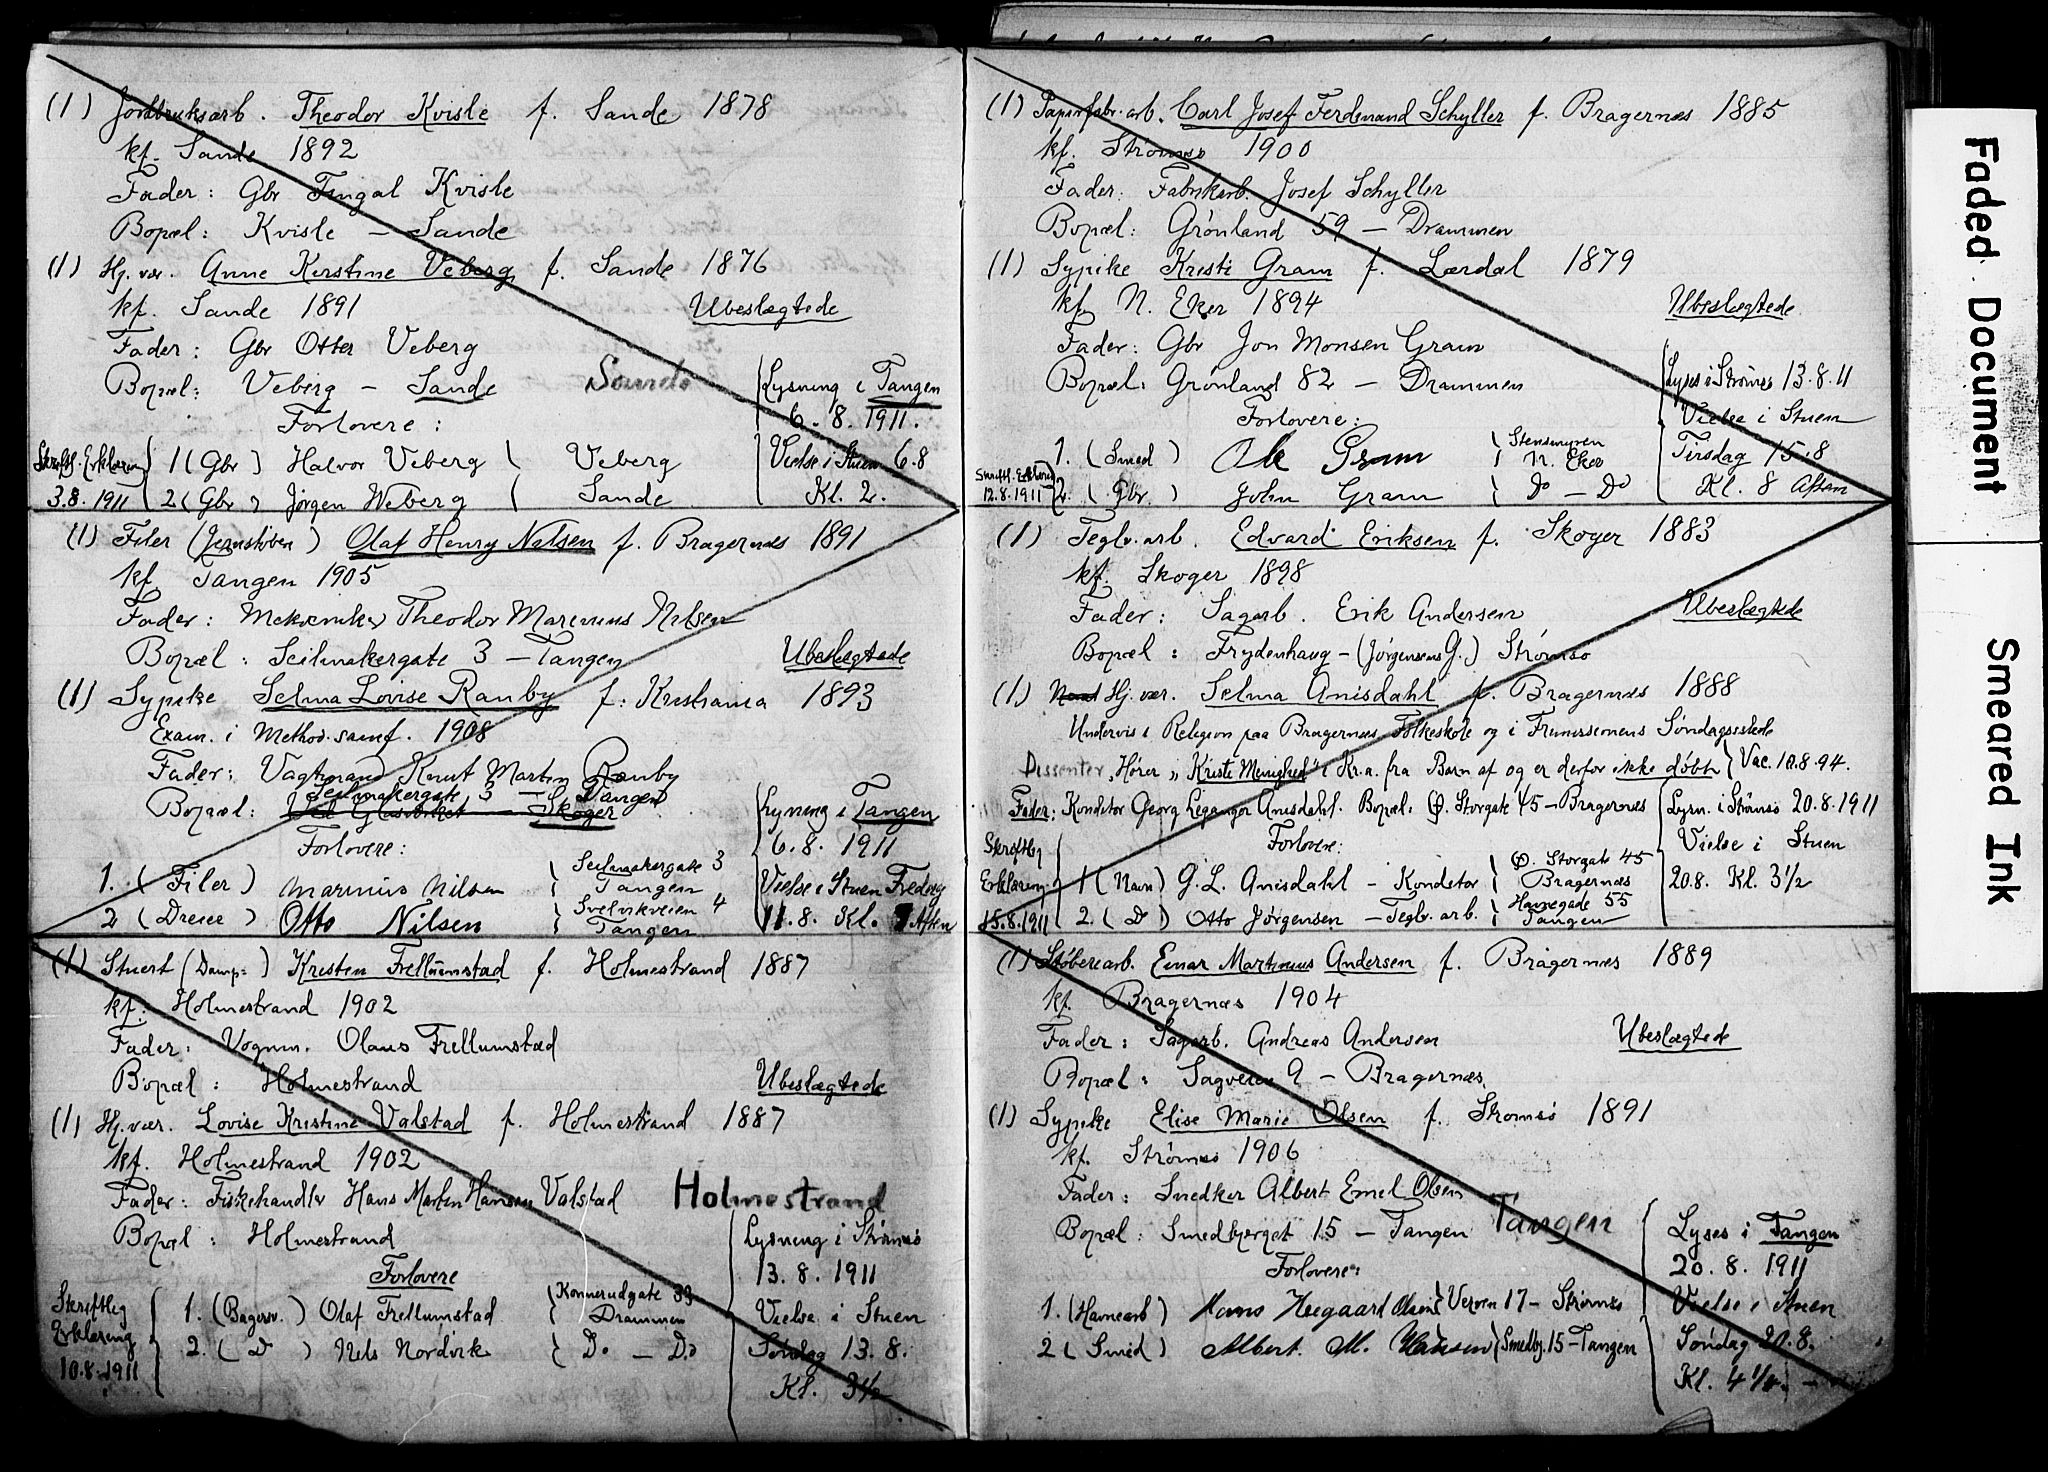 (1) Jordbruksarb. Theodor Kvisle f. Sande 1878
kf. Sande 1892
Fader: Gbr Fingal Kvisle
Bopæl: Kvisle – Sande
(1) Hj. vær. Anne Kirstine Veberg f. Sande 1876
kf. Sande 1891 Ubeslægtede
Fader: Gbr Otter Veberg
Bopæl: Veberg – Sande Sande Lysning i Tangen
Forlovere: 6.8.1911.
Skriftl. Erklæring 1 (Gbr) Halvor Veberg Veberg Vielse i Stuen 6.8
3.8.1911 2 (Gbr) Jørgen Weberg Sande Kl. 2.
(1) Filer (Jernstøberi) Olaf Henry Nilsen f. Bragernæs 1891
kf. Tangen 1905
Fader: Mekaniker Theodor Marinius Nilsen
Bopæl: Seilmakergate 3 – Tangen Ubeslægtede
(1) Sypike Selma Lovise Ranby f. Kristiania 1893
Exam. i Method. samf. 1908
Fader: Vagtmand Knut Martin Ranby
Seilmakergate 3 – Tangen
Bopæl: Ved Glasværket – Skoger Lysning i Tangen
Forlovere: 6.8.1911
1. (Filer) Marinius Nilsen Seilmakergate 3 Tangen Vielse i Stuen Fredag
2 (Dreier) Otto Nilsen Svelvikveien 4 Tangen 11.8. Kl. 7 Aften
(1) Stuert (Damp=) Kristen Frellumstad f. Holmestrand 1887
kf. Holmestrand 1902
Fader: Vognm. Olaus Frellumstad
Bopæl: Holmestrand Ubeslægtede
(1) Hj. vær. Lovise Kristine Valstad f. Holmestrand 1887
kf. Holmestrand 1902
Fader: Fiskehandler Hans Martin Hansen Valstad Holmestrand
Bopæl: Holmestrand Lysning i Strømsø
Forlovere 13.8.1911
Skriftlig 1. (Bagersv.) Olaf Frellumstad Konnerudgate 33 Drammen Vielse i Stuen
Erklæring 2. (D) Nils Nordvik Do – Do Søndag 13.8.
10.8.1911 Kl. 3½
(1) Papirfabr. arb. Carl Josef Ferdinand Schyller f. Bragernæs 1885
kf. Strømsø 1900
Fader: Fabrikarb. Josef Schyller
Bopæl: Grønland 59 – Drammen
(1) Sypike Kristi Gram f. Lærdal 1879
kf. N. Eker 1894 Ubeslægtede
Fader: Gbr Jon Monsen Gram
Bopæl: Grønland 82 – Drammen Lyses i Strømsø 13.8.11
Forlovere: Vielse i Stuen
1. (Smed) Ole Gram Stensmyren N. Eker Tirsdag 15.8
Skriftl. Erklæring 12.8.1911 2. (Gbr.) John Gram Do – Do Kl. 8 Aften
(1) Teglv. arb. Edvard Eriksen f. Skoger 1883
kf. Skoger 1898
Fader: Sagarb. Erik Andersen Ubeslægtede
Bopæl: Frydenhaug – (Jørgensens G.) Strømsø
(1) Hj. vær. Selma Anisdahl f. Bragernæs 1888
Undervis i Religion paa Bragernæs Folkeskole og i Frimissionens Søndagsskole
Dissenter, Hører „Kristi Menighed" i Kr.a. fra Barn af og er derfor ikke døbt Vac. 18.8.94.
Fader: Konditor Georg Leganger Anisdahl. Bopæl: Ø. Storgate 45 – Bragernæs Lysn. i Strømsø 20.8.1911
Skriftlig Forlovere: Vielse i Stuen
Erklæring 1 (Navn) G. L. Anisdahl – Konditor Ø. Storgate 45 Bragernæs 20.8. Kl. 3½
18.8.1911 2. (D) Otto Jørgensen – Teglv. arb. Havnegade 55 Tangen
(1) Støberiarb. Einar Martinius Andersen f. Bragernæs 1889
kf. Bragernæs 1904
Fader: Sagarb. Andreas Andersen Ubeslægtede
Bopæl: Sagveien 9 – Bragernæs
(1) Sypike Elise Marie Olsen f. Strømsø 1891
kf. Strømsø 1906
Fader: Snedker Albert Emil Olsen
Bopæl: Smedbjerget 15 – Tangen Tangen Lyses i Tangen
Forlovere: 20.8.1911
1. (Havnearb) Hans Heegaard Olsen Verven 17 – Strømsø Vielse i Stuen
2 (Smed) Albert. M. Hansen Smedbj. 15 – Tangen Søndag 20.8.
Kl. 4¼.
Faded Document
Smeared Ink